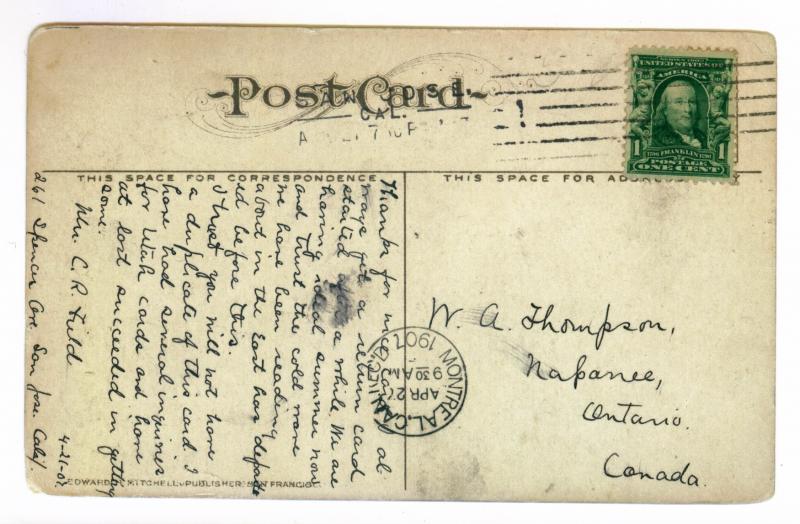 Post Card
SAN JOSE,
CAL.
SERIES 1902
UNITED STATES OF
AMERICA
1 1
FRANKLIN
POSTAGE
ONE CENT
THIS SPACE FOR CORRESPONDENCE
THIS SPACE FOR ADDRESS
Thanks for nice card. I al-
ways get a return card
started after a while. We are
having ideal summer now
and trust the cold wave
we have been reading
about in the East has
before this.
I trust you will not have
a duplicate of this card. I
have had several inquiries
for Utah cards and have
at last succeeded in getting
some.
Mr. C. R. Field
4-21-07
261 Spencer Ave. San Jose, Calif.
MONTREAL, CAN.
APR 27
9 30 AM
1907
W. A. Thompson,
Napanee,
Ontario.
Canada.
EDWARD H. MITCHELL, PUBLISHER, SAN FRANCISCO